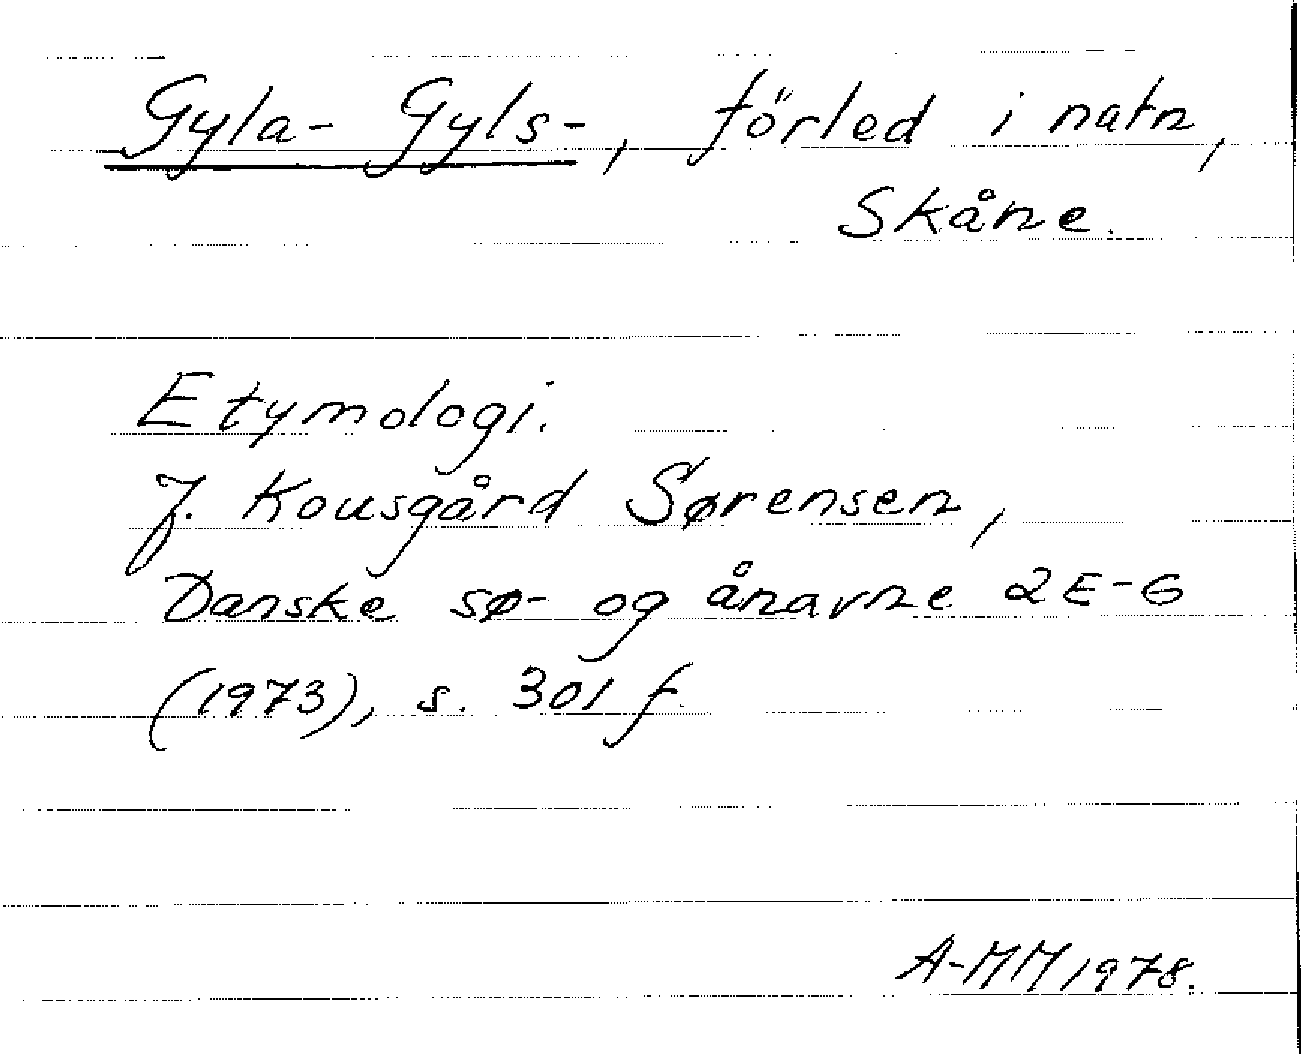 Gyla- Gyls-, förled i natn,
Skåne.
Etymologi.
J. Kousgård Sørensen,
Danske sø- og ånavne 2 E-G
(1973), s. 301 f.
A-MM 1978.